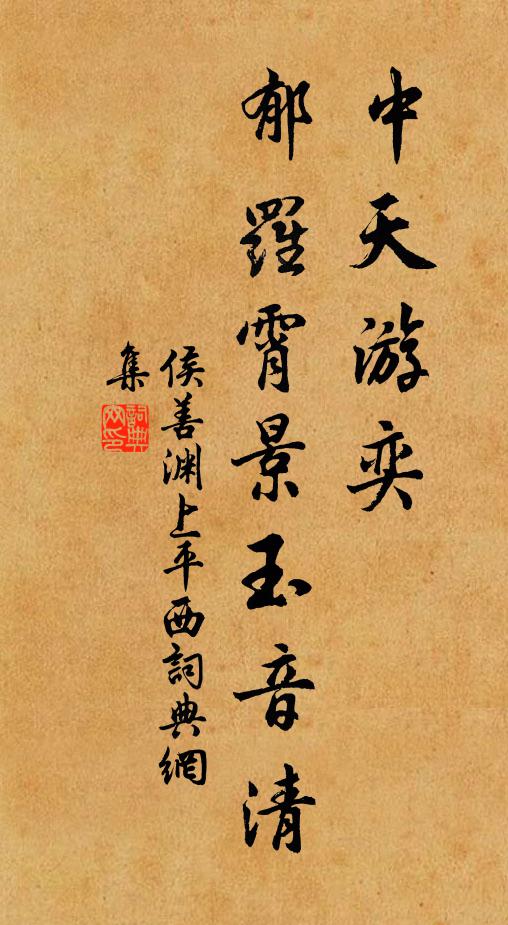 中天游奕
郁羅霄景玉音清
侯善渊上平西詞典網
集
詞典
网印